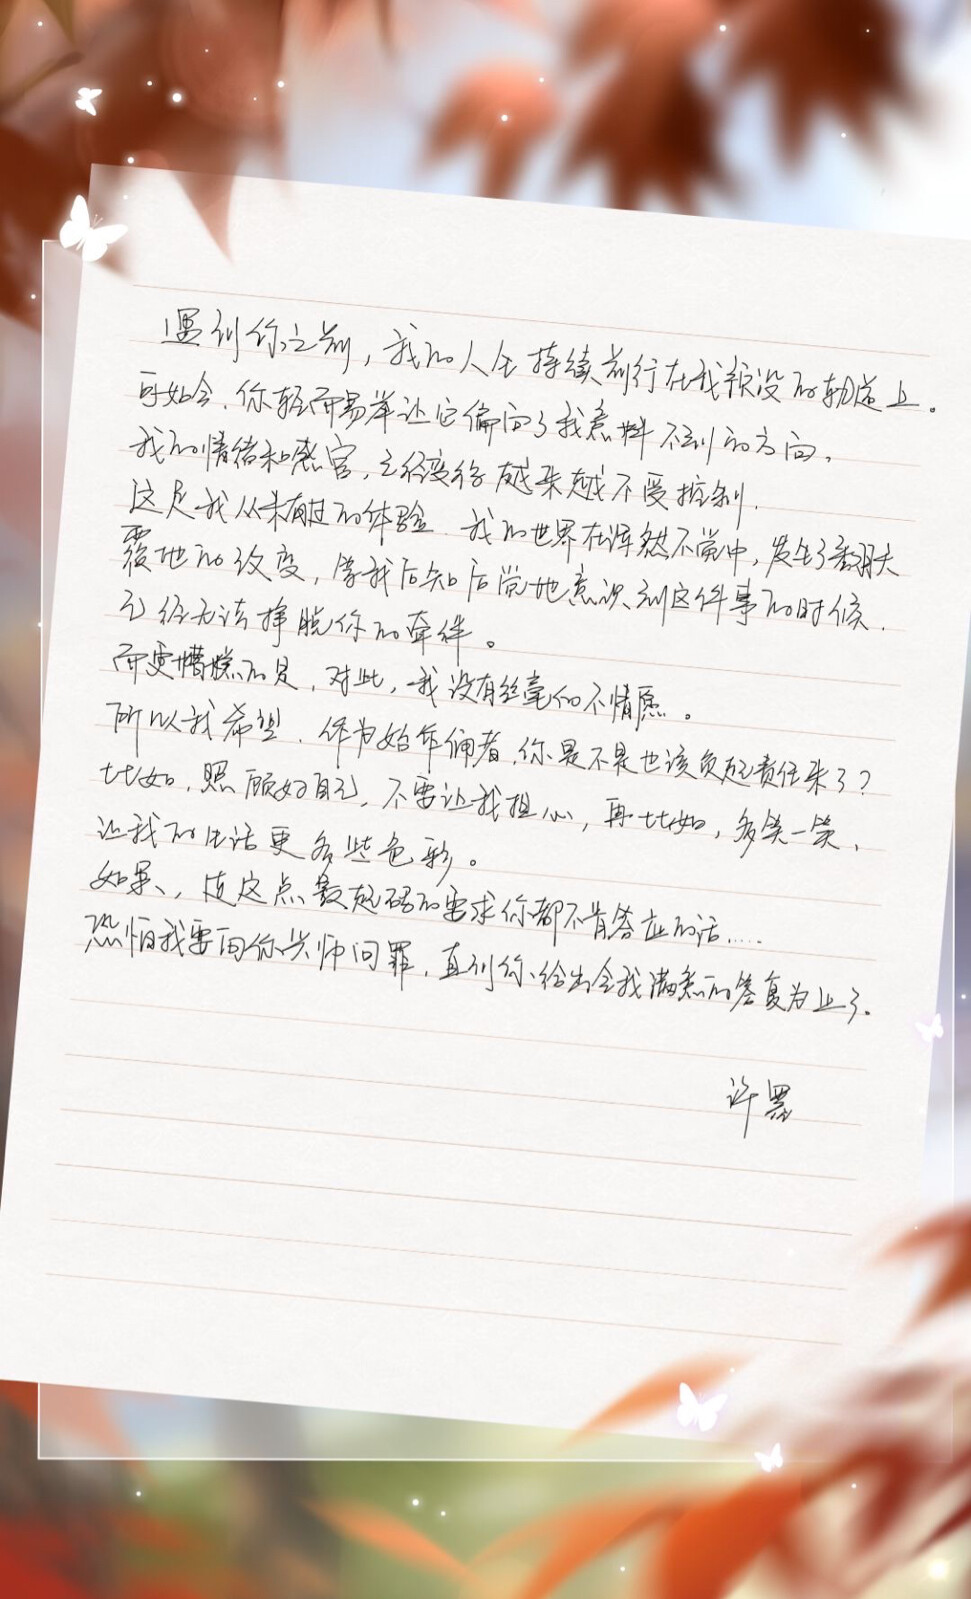 遇到你之前，我的人生持续前行在我预设的轨道上。
可如今，你轻而易举让它偏向了我意料不到的方向。
我的情绪和感官，已经变得越来越不受控制。
这是我从未有过的体验。我的世界在浑然不觉中，发生了翻天
覆地的改变，等我后知后觉地意识到这件事的时候，
已经无法挣脱你的牵绊。
而更糟糕的是，对此，我没有丝毫的不情愿。
所以我希望，作为始作俑者，你是不是也该负起责任来了？
比如，照顾好自己，不要让我担心，再比如，多笑一笑，
让我的生活更多些色彩。
如果，连这点最起码的要求你都不肯答应的话……
恐怕我要向你兴师问罪，直到你给出令我满意的答复为止了。
许墨